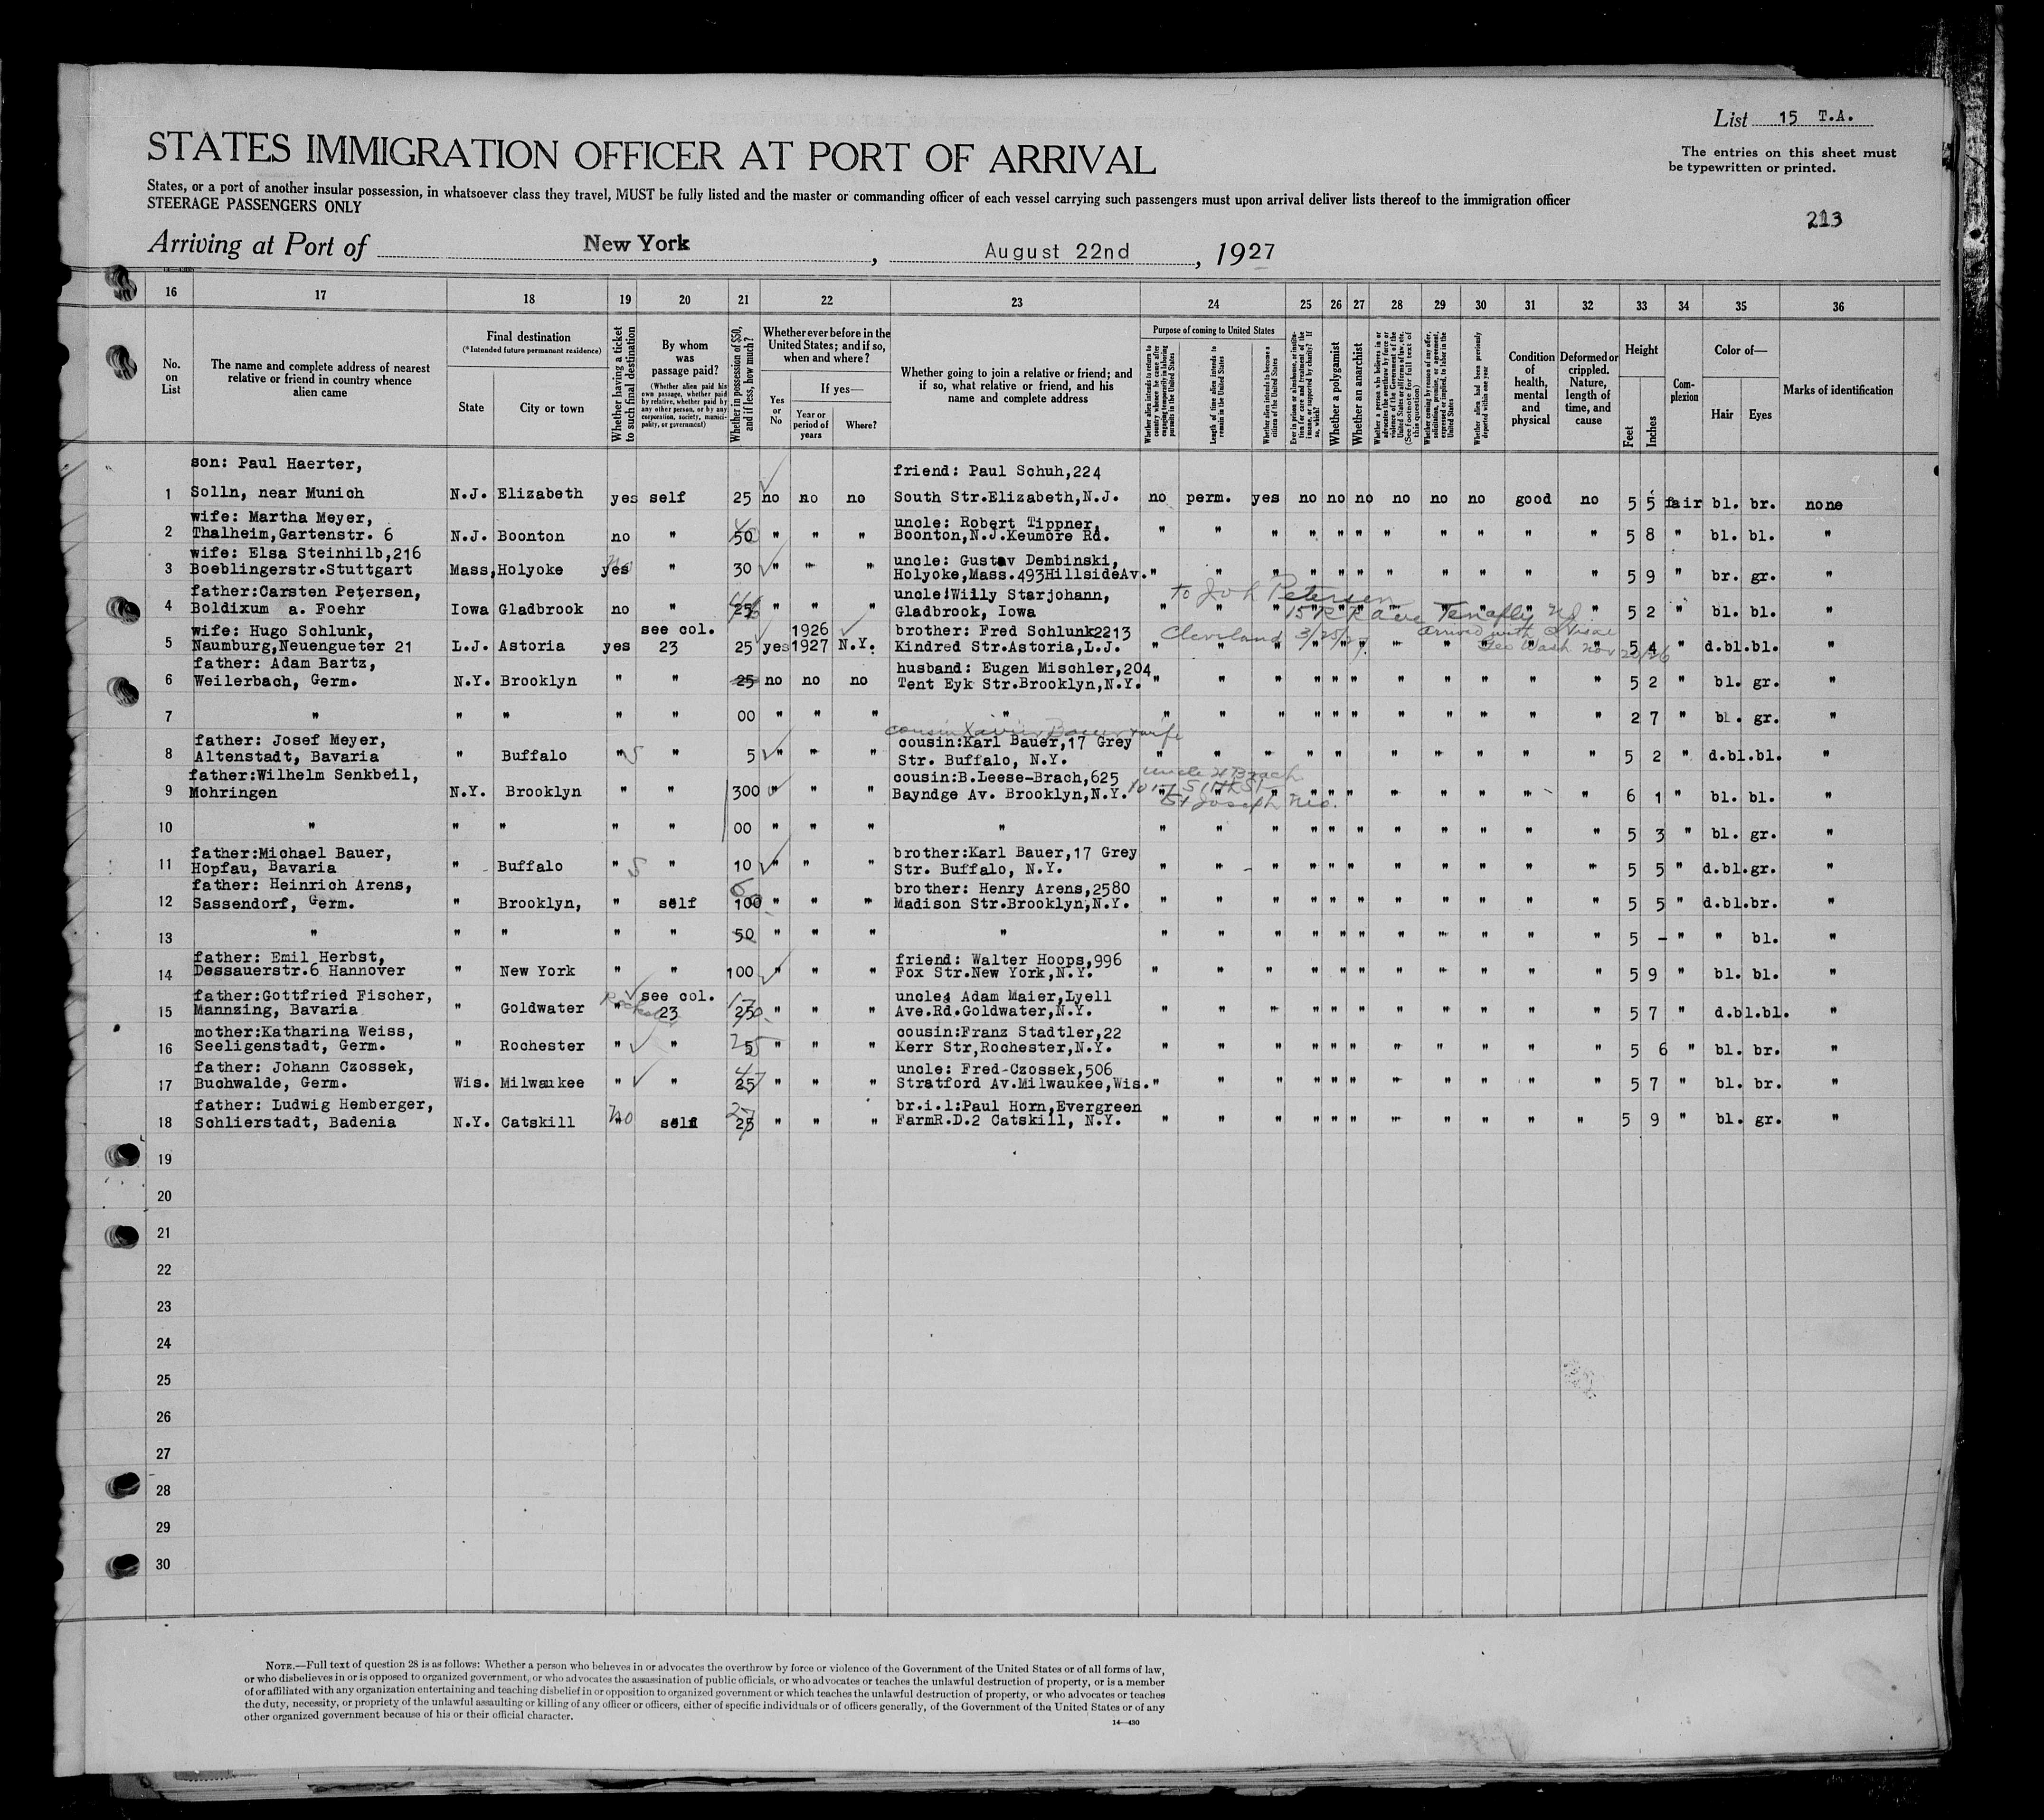 List 15 T.A.
STATES IMMIGRATION OFFICER AT PORT OF ARRIVAL
The entries on this sheet must
be typewritten or printed.
States, or a port of another insular possession, in whatsoever class they travel, MUST be fully listed and the master or commanding officer of each vessel carrying such passengers must upon arrival deliver lists thereof to the immigration officer
STEERAGE PASSENGERS ONLY
213
Arriving at Port of New York, August 22nd, 1927
16 17 18 19 20 21 22 23 24 25 26 27 28 29 30 31 32 33 34 35 36
No. on List
The name and complete address of nearest relative or friend in country whence alien came
Final destination
(*Intended future permanent residence)
State
City or town
Whether having a ticket to such final destination
By whom was passage paid?
(Whether alien paid his own passage, whether paid by relative, whether paid by any other person, or by any corporation, society, municipality, or government)
Whether in possession of $50, and if less, how much?
Whether ever before in the United States; and if so, when and where?
Yes or No
If yes—
Year or period of years
Where?
Whether going to join a relative or friend; and if so, what relative or friend, and his name and complete address
Purpose of coming to United States
Whether alien intends to return to country whence he came after engaging temporarily in laboring pursuits in the United States
Length of time alien intends to remain in the United States
Whether alien intends to become a citizen of the United States
Whether a polygamist
Whether an anarchist
Whether alien had been previously deported within one year
Condition of health, mental and physical
Deformed or crippled. Nature, length of time, and cause
Height
Feet
Inches
Complexion
Color of—
Hair
Eyes
Marks of identification
son: Paul Haerter, friend: Paul Schuh,224
1 Solln, near Munich N.J. Elizabeth yes self 25 no no no South Str.Elizabeth,N.J. no perm. yes no no no no no no good no 5 5 fair bl. br. none
wife: Martha Meyer, uncle: Robert Tippner,
2 Thalheim,Gartenstr. 6 N.J. Boonton no " 50 " " " Boonton,N.J.Keumore Rd. " " " " " " " " " " " 5 8 " bl. bl. "
wife: Elsa Steinhilb,216 uncle: Gustav Dembinski,
3 Boeblingerstr.Stuttgart Mass, Holyoke yes no " 30 " " " Holyoke,Mass.493HillsideAv. " " " " " " " " " " " 5 9 " br. gr. "
father:Carsten Petersen, uncle:Willy Starjohann, to Joh Petersen
4 Boldixum a. Foehr Iowa Gladbrook no " 25 " " " Gladbrook, Iowa " " " " " " " " " " " 5 2 " bl. bl. "
15 R R Ave Tenafly NJ
wife: Hugo Schlunk, see col. 1926 brother: Fred Schlunk2213 Cleveland 3/25/27 arrived with
5 Naumburg,Neuengueter 21 L.J. Astoria yes 23 25 yes 1927 N.Y. Kindred Str.Astoria,L.J. " " " " " " " " " " " 5 4 " d.bl. bl. "
Geo Wash Nov 20/26
father: Adam Bartz, husband: Eugen Mischler,204
6 Weilerbach, Germ. N.Y. Brooklyn " " 25 no no no Tent Eyk Str.Brooklyn,N.Y. " " " " " " " " " " " 5 2 " bl. gr. "
7 " " " " " 00 " " " " " " " " " " " " " " " 2 7 " bl. gr. "
cousin Xavier Bauer wife
father: Josef Meyer, cousin:Karl Bauer,17 Grey
8 Altenstadt, Bavaria " Buffalo " S " 5 " " " Str. Buffalo, N.Y. " " " " " " " " " " " 5 2 " d.bl. bl. "
father:Wilhelm Senkbeil, cousin:B.Leese-Brach,625 uncle H Brach
9 Mohringen N.Y. Brooklyn " " 300 " " " Bayndge Av. Brooklyn,N.Y. " " " " " " " " " " " 6 1 " bl. bl. "
St Joseph Mo.
10 " " " " " 00 " " " " " " " " " " " " " " " 5 3 " bl. gr. "
father:Michael Bauer, brother:Karl Bauer,17 Grey
11 Hopfau, Bavaria " Buffalo " S " 10 " " " Str. Buffalo, N.Y. " " " " " " " " " " " 5 5 " d.bl. gr. "
father: Heinrich Arens, brother: Henry Arens,2580
12 Sassendorf, Germ. " Brooklyn, " self 100 " " " Madison Str.Brooklyn,N.Y. " " " " " " " " " " " 5 5 " d.bl. br. "
13 " " " " " 50 " " " " " " " " " " " " " " " 5 - " " bl. "
father: Emil Herbst, friend: Walter Hoops,996
14 Dessauerstr.6 Hannover " New York " " 100 " " " Fox Str.New York,N.Y. " " " " " " " " " " " 5 9 " bl. bl. "
father:Gottfried Fischer, see col. uncle: Adam Maier,Lyell
15 Mannzing, Bavaria " Goldwater " Rochester 23 25 " " " Ave.Rd.Goldwater,N.Y. " " " " " " " " " " " 5 7 d.bl. bl. "
mother:Katharina Weiss, cousin:Franz Stadtler,22
16 Seeligenstadt, Germ. " Rochester " " 5 25 " " " Kerr Str,Rochester,N.Y. " " " " " " " " " " " 5 6 " bl. br. "
father: Johann Czossek, uncle: Fred-Czossek,506
17 Buchwalde, Germ. Wis. Milwaukee " " 25 " " " Stratford Av.Milwaukee,Wis. " " " " " " " " " " " 5 7 " bl. br. "
father: Ludwig Hemberger, br.i.l:Paul Horn,Evergreen
18 Schlierstadt, Badenia N.Y. Catskill no self 25 " " " FarmR.D.2 Catskill, N.Y. " " " " " " " " " " " 5 9 " bl. gr. "
19
20
21
22
23
24
25
26
27
28
29
30
NOTE.—Full text of question 28 is as follows: Whether a person who believes in or advocates the overthrow by force or violence of the Government of the United States or of all forms of law,
or who disbelieves in or is opposed to organized government, or who advocates the assassination of public officials, or who advocates or teaches the unlawful destruction of property, or is a member
of or affiliated with any organization entertaining and teaching disbelief in or opposition to organized government or which teaches the unlawful destruction of property, or who advocates or teaches
the duty, necessity, or propriety of the unlawful assaulting or killing of any officer or officers, either of specific individuals or of officers generally, of the Government of the United States or of any
other organized government because of his or their official character.
14—430